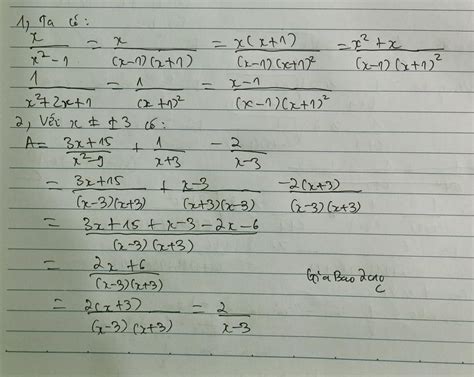 1, Ta có:
x/(x² - 1) = x/((x-1)(x+1)) = x(x+1)/((x-1)(x+1)²) = (x² + x)/((x-1)(x+1)²)
1/(x²+2x+1) = 1/(x+1)² = (x-1)/((x-1)(x+1)²)
2, Với x ≠ ±3 có:
A = (3x+15)/(x²-9) + 1/(x+3) - 2/(x-3)
= (3x+15)/((x-3)(x+3)) + (x-3)/((x+3)(x-3)) -2(x+3)/((x-3)(x+3))
= (3x+15+x-3-2x-6)/((x-3)(x+3))
= (2x+6)/((x-3)(x+3))
Gia Bao
= 2(x+3)/((x-3)(x+3)) = 2/(x-3)